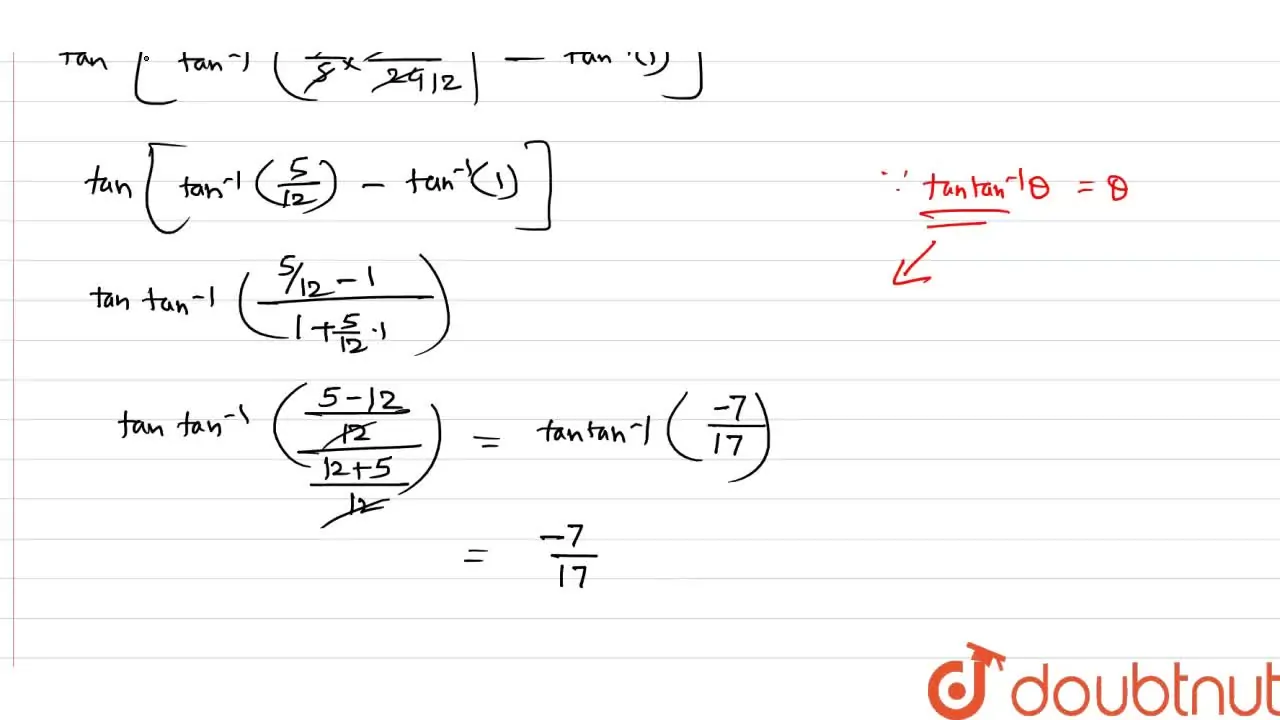 tan [ tan⁻¹ ( /8 × /24 12 ) − tan⁻¹(1) ]
tan [ tan⁻¹ (5/12) − tan⁻¹(1) ]
∵ tan tan⁻¹θ = θ
tan tan⁻¹ ( (5/12 − 1) / (1 + 5/12 · 1) )
tan tan⁻¹ ( ((5 − 12)/12) / ((12 + 5)/12) ) = tan tan⁻¹ ( −7/17 )
= −7/17
doubtnut